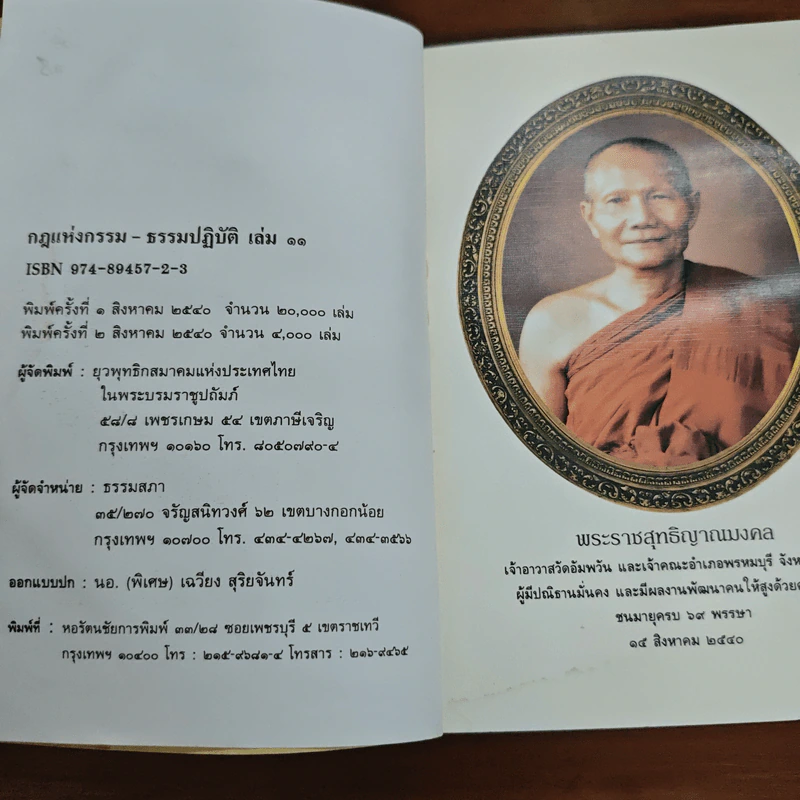 กฎแห่งกรรม – ธรรมปฏิบัติ เล่ม ๑๑
ISBN 974-89457-2-3
พิมพ์ครั้งที่ ๑ สิงหาคม ๒๕๔๐ จำนวน ๒๐,๐๐๐ เล่ม
พิมพ์ครั้งที่ ๒ สิงหาคม ๒๕๔๐ จำนวน ๔,๐๐๐ เล่ม
ผู้จัดพิมพ์ : ยุวพุทธิกสมาคมแห่งประเทศไทย
ในพระบรมราชูปถัมภ์
๕๘/๘ เพชรเกษม ๕๔ เขตภาษีเจริญ
กรุงเทพฯ ๑๐๑๖๐ โทร. ๘๐๕๐๗๙๐-๔
ผู้จัดจำหน่าย : ธรรมสภา
๓๕/๒๗๐ จรัญสนิทวงศ์ ๖๒ เขตบางกอกน้อย
กรุงเทพฯ ๑๐๗๐๐ โทร. ๔๓๔-๔๒๖๗, ๔๓๔-๓๕๖๖
ออกแบบปก : นอ. (พิเศษ) เฉวียง สุริยจันทร์
พิมพ์ที่ : หอรัตนชัยการพิมพ์ ๓๓/๒๘ ซอยเพชรบุรี ๕ เขตราชเทวี
กรุงเทพฯ ๑๐๔๐๐ โทร : ๒๑๕-๙๖๘๑-๔ โทรสาร : ๒๑๖-๙๔๖๕
พระราชสุทธิญาณมงคล
เจ้าอาวาสวัดอัมพวัน และเจ้าคณะอำเภอพรหมบุรี
ผู้มีปณิธานมั่นคง และมีผลงานพัฒนาคนให้สูงด้วย
ชนมายุครบ ๖๙ พรรษา
๑๕ สิงหาคม ๒๕๔๐